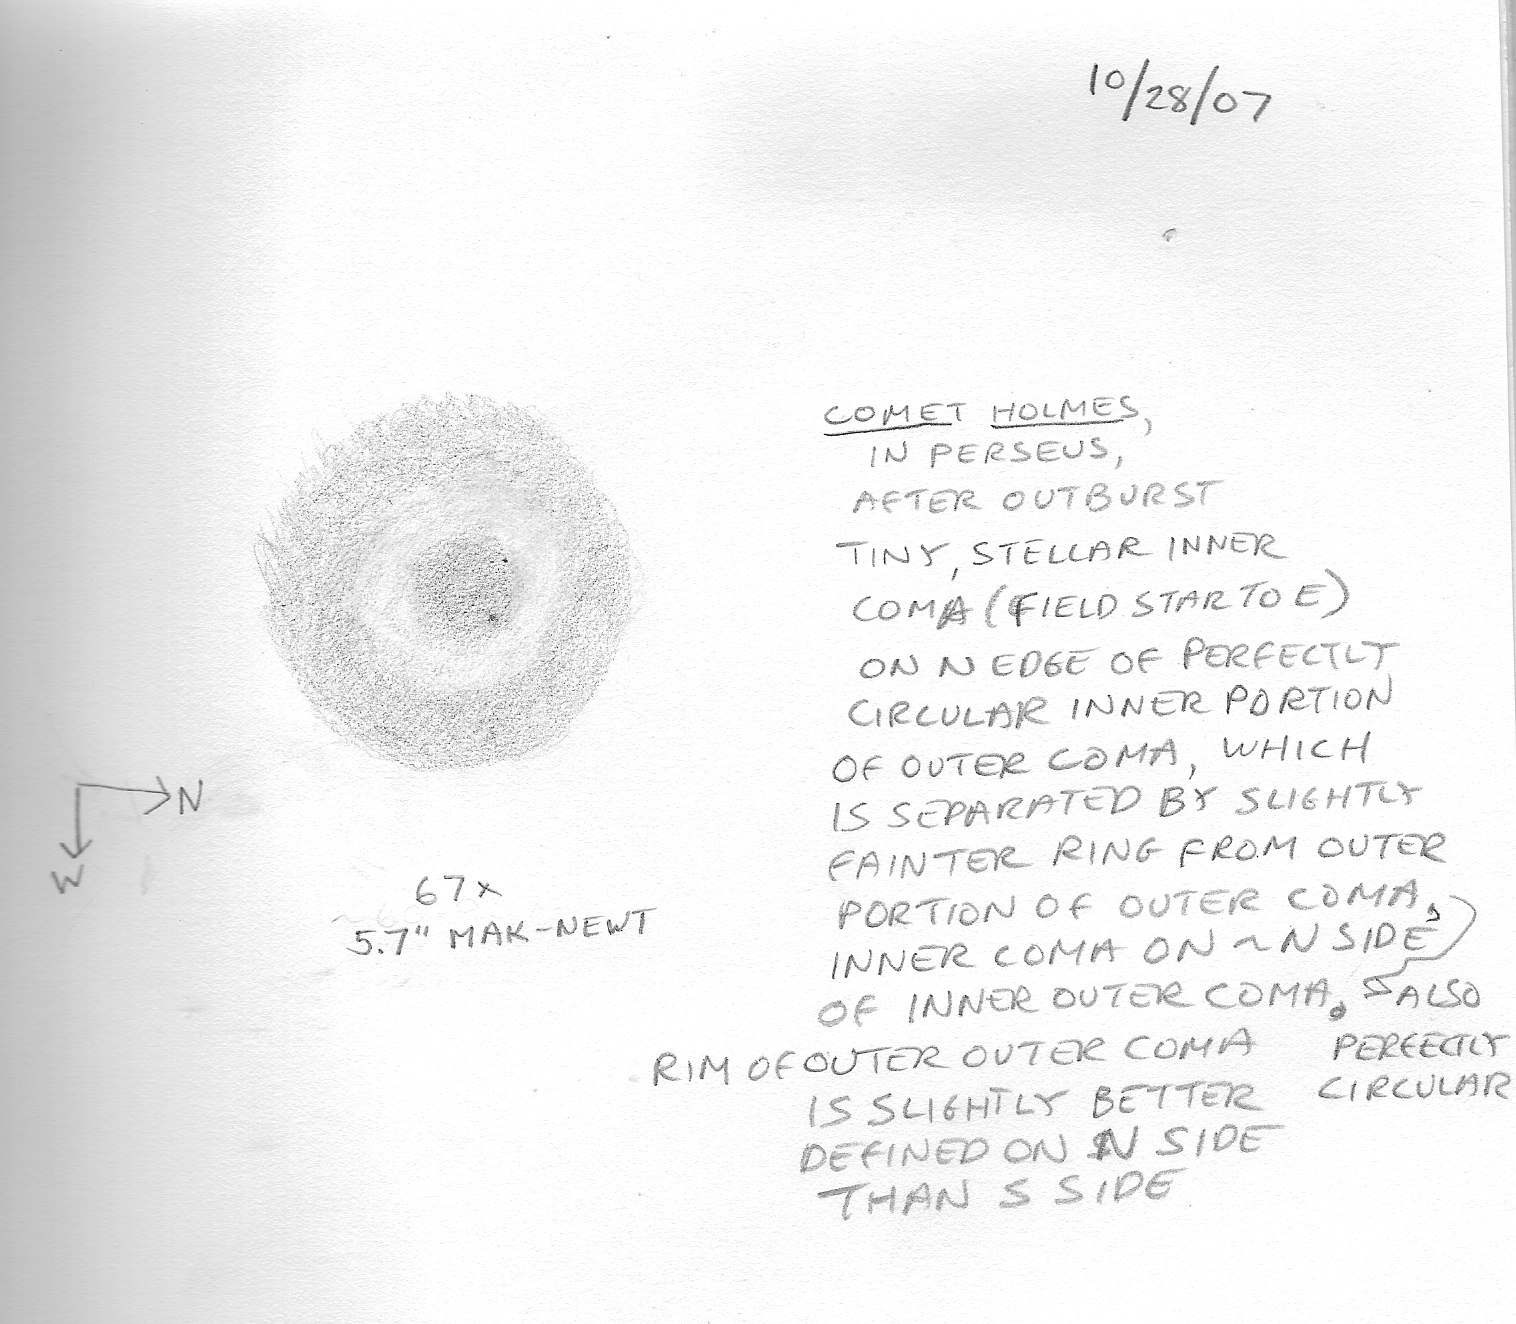 10/28/07
COMET HOLMES,
IN PERSEUS,
AFTER OUTBURST
TINY, STELLAR INNER
COMA (FIELD STAR TO E)
ON N EDGE OF PERFECTLY
CIRCULAR INNER PORTION
OF OUTER COMA, WHICH
IS SEPARATED BY SLIGHTLY
FAINTER RING FROM OUTER
PORTION OF OUTER COMA,
INNER COMA ON ~N SIDE
OF INNER OUTER COMA.
ALSO
PERFECTLY
CIRCULAR
RIM OF OUTER OUTER COMA
IS SLIGHTLY BETTER
DEFINED ON N SIDE
THAN S SIDE
N
W
67x
5.7" MAK-NEWT